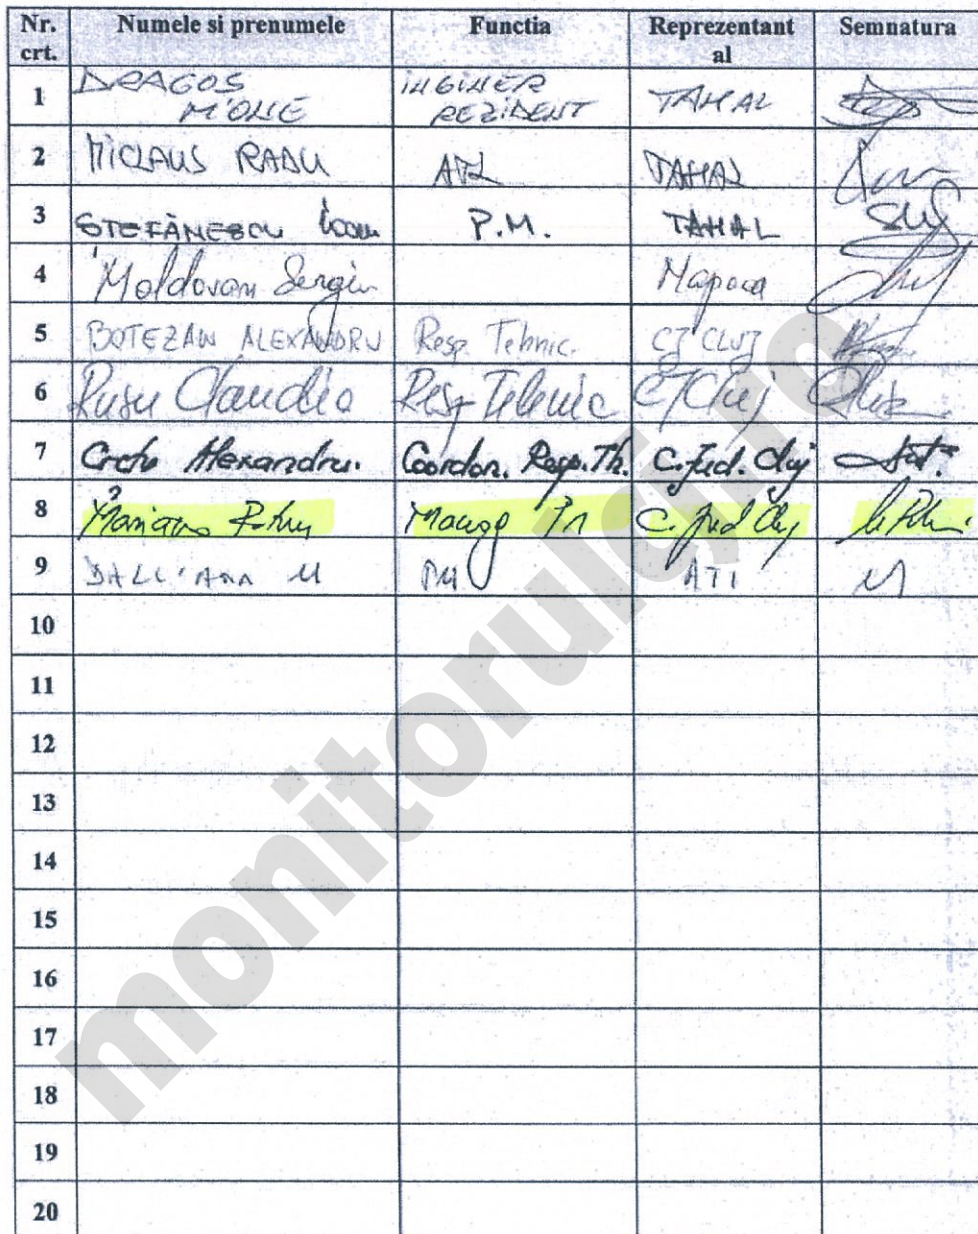 Nr. crt. Numele si prenumele Functia Reprezentant al Semnatura
1 DRAGOS MONE INGINER REZIDENT TAHAL
2 MICLAUS RADU TAHAL
3 STEFĂNESCU P.M. TAHAL
4 Moldovan Sergiu
5 BOTEZAN ALEXANDRU Resp. Tehnic. CJ CLUJ
6 Rusu Claudia Resp Tehnic CJ Cluj
7 Cretu Alexandru. Coordon. Resp. Th. C. Jud. Cluj
8 C. Jud Cluj
9 DALL'ARA M PM ATI
10
11
12
13
14
15
16
17
18
19
20
monitorulcj.ro